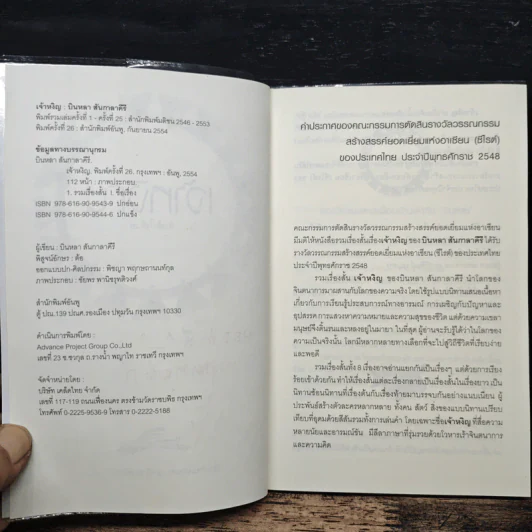 เจ้าหงิญ : บินหลา สันกาลาคีรี
พิมพ์รวมเล่มครั้งที่ 1 - ครั้งที่ 25 : สำนักพิมพ์มติชน 2546 - 2553
พิมพ์ครั้งที่ 26 : สำนักพิมพ์อันพู, กันยายน 2554
ข้อมูลทางบรรณานุกรม
บินหลา สันกาลาคีรี.
เจ้าหงิญ. พิมพ์ครั้งที่ 26. กรุงเทพฯ : อันพู, 2554
112 หน้า : ภาพประกอบ.
1. รวมเรื่องสั้น 1. ชื่อเรื่อง
ISBN 978-616-90-9543-9 ปกอ่อน
ISBN 978-616-90-9544-6 ปกแข็ง
ผู้เขียน : บินหลา สันกาลาคีรี
พิสูจน์อักษร : ต้อ
ออกแบบปก-ศิลปกรรม : พิชญา พฤกษานนท์กุล
ภาพประกอบ : ชัยพร พานิชรุทติวงศ์
สำนักพิมพ์อันพู
ตู้ ปณ.139 ปณศ.รองเมือง ปทุมวัน กรุงเทพฯ 10330
ดำเนินการพิมพ์โดย :
Advance Project Group Co.,Ltd
เลขที่ 23 ซ.ชวกุล ถ.รางน้ำ พญาไท ราชเทวี กรุงเทพฯ
จัดจำหน่ายโดย :
บริษัท เคล็ดไทย จำกัด
เลขที่ 117-119 ถนนเฟื่องนคร ตรงข้ามวัดราชบพิธ กรุงเทพฯ
โทรศัพท์ 0-2225-9536-9 โทรสาร 0-2222-5188
คำประกาศของคณะกรรมการตัดสินรางวัลวรรณกรรม
สร้างสรรค์ยอดเยี่ยมแห่งอาเซียน (ซีไรต์)
ของประเทศไทย ประจำปีพุทธศักราช 2548
คณะกรรมการตัดสินรางวัลวรรณกรรมสร้างสรรค์ยอดเยี่ยมแห่งอาเซียน
มีมติให้หนังสือรวมเรื่องสั้นเรื่องเจ้าหงิญ ของ บินหลา สันกาลาคีรี ได้รับ
รางวัลวรรณกรรมสร้างสรรค์ยอดเยี่ยมแห่งอาเซียน (ซีไรต์) ของประเทศไทย
ประจำปีพุทธศักราช 2548
รวมเรื่องสั้น เจ้าหงิญ ของบินหลา สันกาลาคีรี นำโลกของ
จินตนาการมาผสานกับโลกของความจริง โดยใช้รูปแบบนิทานเสนอเนื้อหา
เกี่ยวกับการเรียนรู้ประสบการณ์ทางอารมณ์ การเผชิญกับปัญหาและ
อุปสรรค การแสวงหาความหมายและความสุขของชีวิต แต่ด้วยความเขลา
มนุษย์จึงดิ้นรนและหลงอยู่ในมายา ในที่สุด ผู้อ่านจะรับรู้ได้ว่าในโลกของ
ความเป็นจริงนั้น โลกมีหลากทางเลือกที่จะไปสู่วิถีชีวิตที่เรียบง่าย
และพอดี
รวมเรื่องสั้นทั้ง 8 เรื่องอาจอ่านแยกกันเป็นเรื่องๆ แต่ด้วยการเรียง
ร้อยเข้าด้วยกัน ทำให้เรื่องสั้นแต่ละเรื่องกลายเป็นเรื่องสั้นในเรื่องยาว เป็น
นิทานซ้อนนิทานที่เรื่องต้นกับเรื่องท้ายมาบรรจบกันอย่างแนบเนียน ผู้
ประพันธ์สร้างตัวละครหลากหลาย ทั้งคน สัตว์ สิ่งของแบบนิทานเปรียบ
เทียบที่อุดมด้วยสีสันรวมทั้งการเล่นคำ โดยเฉพาะชื่อเจ้าหงิญ ที่สื่อความ
หลายนัยและอารมณ์ขัน มีลีลาภาษาที่รุ่มรวยด้วยโวหารเร้าจินตนาการ
และความคิด